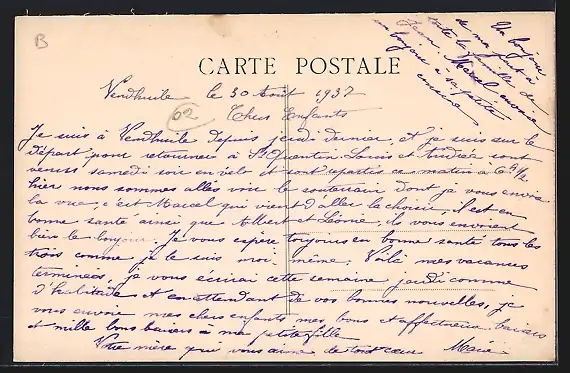 B
CARTE POSTALE
Vendhuile le 30 Août 1937
62
Chers Enfants
Je suis à Vendhuile depuis jeudi dernier, et je suis sur le
départ pour retourner à St Quentin Louis et Andrée sont
venus samedi soir en velo et sont repartis ce matin à 6h 1/2
hier nous sommes allés voir le souterrain dont je vous envoie
la vue, c'est Marcel qui vient d'aller la choisir, il est en
bonne santé ainsi que Albert et Léonie, ils vous envoient
bien le bonjour. Je vous espère toujours en bonne santé tous les
trois comme je le suis moi-même. Voilà mes vacances
terminées, je vous écrirai cette semaine jeudi comme
d'habitude et en attendant de vos bonnes nouvelles, je
vous envoie mes chers enfants mes bons et affectueux baisers
et mille bons baisers à ma petite fille
Votre mère qui vous aime de tout cœur Maria
Un bonjour
de ma part à
toute la famille de
Jean. Marcel envoie
un bonjour à sa petite